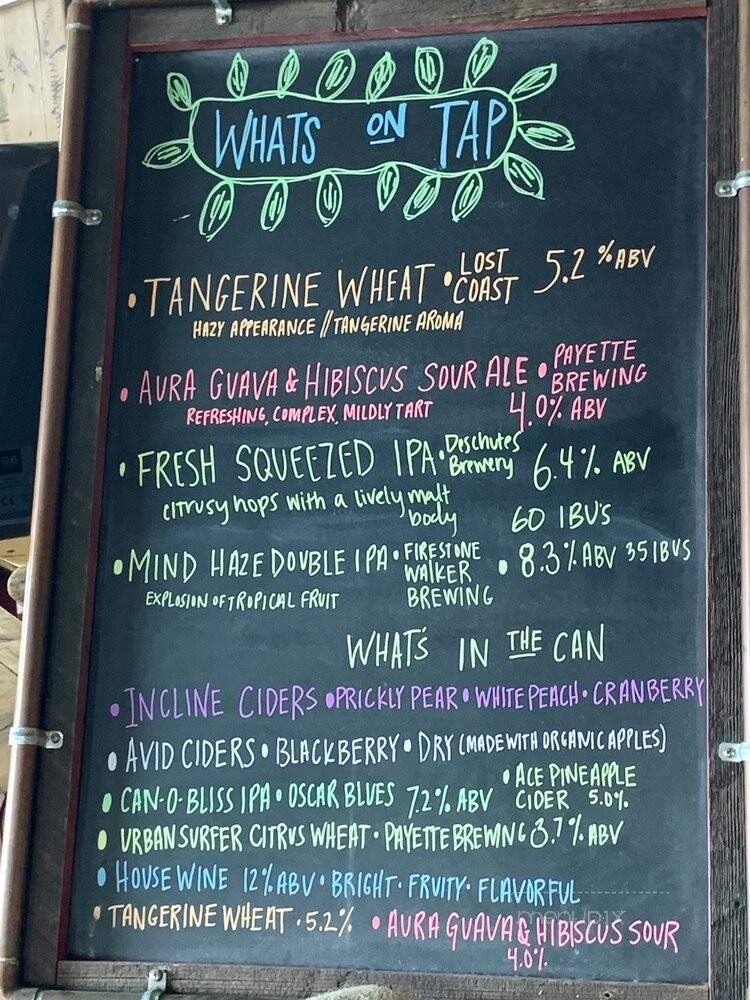 WHATS ON TAP
• TANGERINE WHEAT • LOST COAST 5.2 % ABV
HAZY APPEARANCE // TANGERINE AROMA
• AURA GUAVA & HIBISCUS SOUR ALE • PAYETTE BREWING
REFRESHING, COMPLEX, MILDLY TART 4.0% ABV
• FRESH SQUEEZED IPA • Deschutes Brewery 6.4% ABV
citrusy hops with a lively malt body 60 IBU'S
• MIND HAZE DOUBLE IPA • FIRESTONE WALKER BREWING • 8.3% ABV 35 IBUS
EXPLOSION OF TROPICAL FRUIT
WHAT'S IN THE CAN
• INCLINE CIDERS • PRICKLY PEAR • WHITE PEACH • CRANBERRY
• AVID CIDERS • BLACKBERRY • DRY (MADE WITH ORGANIC APPLES)
• CAN-O-BLISS IPA • OSCAR BLUES 7.2% ABV • ACE PINEAPPLE CIDER 5.0%
• URBAN SURFER CITRUS WHEAT • PAYETTE BREWING 3.7% ABV
• HOUSE WINE 12% ABV • BRIGHT • FRUITY • FLAVORFUL
• TANGERINE WHEAT • 5.2% • AURA GUAVA & HIBISCUS SOUR
4.0%
menupix